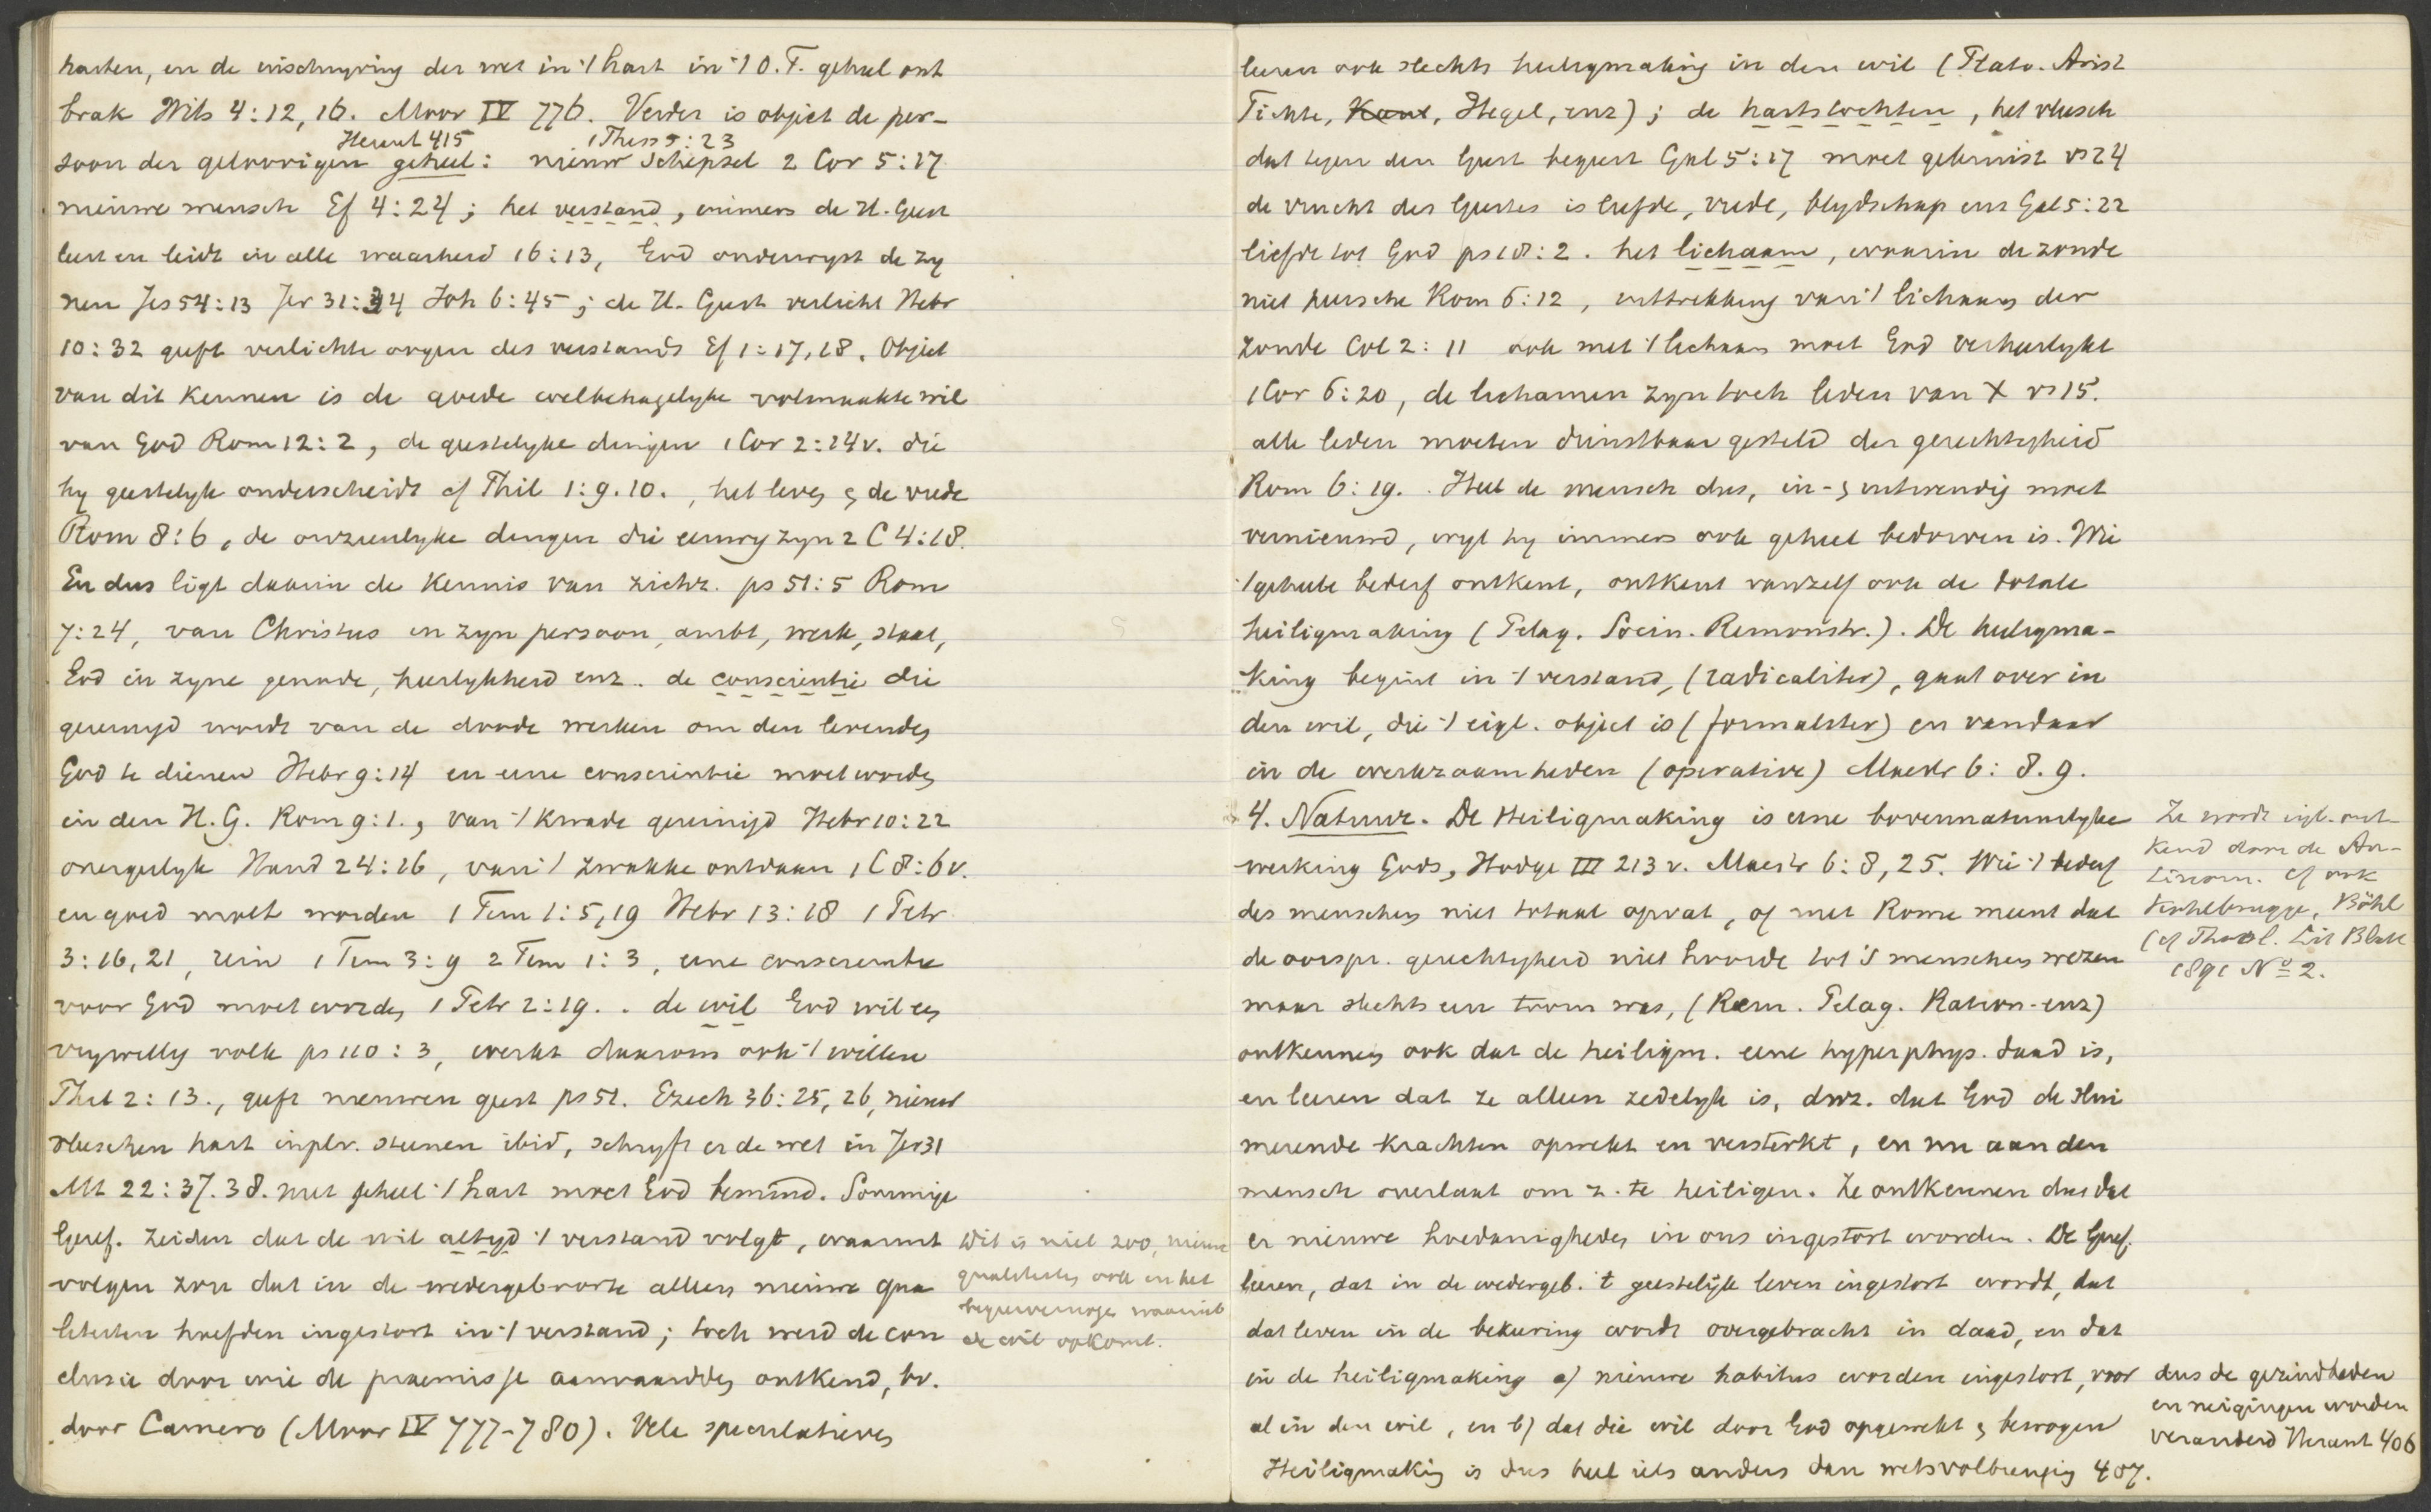 harten, en de inschryving der wet in 't hart in 't O.T. geheel ont
brak Wits 4:12, 16. Moor IV 776. Verder is object de per-
Heraut 415 1 Thess 5:23
soon der geloovigen geheel: nieuw schepsel 2 Cor 5:17
nieuwe mensch Ef 4:24; het verstand, immers de H. Geest
leert en leidt in alle waarheid 16:13, God onderwyst de zy
nen Jes 54:13 Jer 31:34 Joh 6:45; de H. Geest verlicht Hebr
10:32 geeft verlichte oogen des verstands Ef 1:17,18. Object
van dit kennen is de goede welbehagelyke volmaakte wil
van God Rom 12:2, de geestelyke dingen 1 Cor 2:14v. die
hy geestelyk onderscheidt cf Phil 1:9.10., het leven & de vrede
Rom 8:6, de onzienlyke dingen die eeuwig zyn 2 C 4:18.
En dus ligt daarin de kennis van zichz. ps 51:5 Rom
7:24, van Christus in zyn persoon, ambt, werk, staat,
God in zyne genade, heerlykheid enz. de conscientie die
gereinigd wordt van de doode werken om den levenden
God te dienen Hebr 9:14 en eene conscientie moet worden
in den H.G. Rom 9:1., van 't kwade gereinigd Hebr 10:22
onergerlyk Hand 24:16, van 't zwakke ontdaan 1 C 8:6v.
en goed moet worden 1 Tim 1:5,19 Hebr 13:18 1 Petr
3:16,21, rein 1 Tim 3:9 2 Tim 1:3, eene conscientie
voor God moet worden 1 Petr 2:19. . de wil God wil een
vrywillig volk ps 110:3, werkt daarom ook 't willen
Phil 2:13., geeft nieuwen geest ps 51. Ezech 36:25,26, nieuw
vleeschen hart inplv. steenen ibid, schryft er de wet in Jer 31
Mt 22:37.38. met geheel 't hart moet God bemind. Sommige
Geref. zeiden dat de wil altyd 't verstand volgt, waaruit
volgen zou dat in de wedergeboorte alleen nieuwe qua
liteiten hoefden ingestort in 't verstand; toch werd de con
clusie door wie de praemisse aanvaardden ontkend, bv.
door Camero (Moor IV 777-780). Vele speculatieven
Dit is niet zoo, nieuwe
qualiteiten ook in het
begeervermogen waaruit
de wil opkomt.
leeren ook slechts heiligmaking in den wil (Plato. Arist
Fichte, Kant, Hegel, enz); de hartstochten, het vleesch
dat tegen den Geest begeert Gal 5:17 moet gekruist vs 24
de vrucht des Geestes is liefde, vrede, blydschap enz Gal 5:22
liefde tot God ps 18:2. het lichaam, waarin de zonde
niet heersche Rom 6:12, uittrekking van 't lichaam der
zonde Col 2:11 ook met 't lichaam moet God verheerlykt
1 Cor 6:20, de lichamen zyn toch leden van X vs 15.
alle leden moeten dienstbaar gesteld der gerechtigheid
Rom 6:19. Heel de mensch dus, in- & uitwendig moet
vernieuwd, wyl hy immers ook geheel bedorven is. Wie
't geheele bederf ontkent, ontkent vanzelf ook de totale
heiligmaking (Pelag. Socin. Remonstr.). De heiligma-
king begint in 't verstand, (radicaliter), gaat over in
den wil, die 't eigl. object is (formaliter) en vandaar
in de werkzaamheden (operative) Maestr 6:8.9.
4. Natuur. De Heiligmaking is eene bovennatuurlyke
werking Gods, Hodge III 213 v. Maestr 6:8,25. Wie 't bederf
des menschen niet totaal opvat, of met Rome meent dat
de oorspr. gerechtigheid niet hoorde tot 's menschen wezen
maar slechts een toom was, (Rem. Pelag. Ration. enz)
ontkennen ook dat de heiligm. eene hyperphys. daad is,
en leeren dat ze alleen zedelyk is, dwz. dat God de slui
merende krachten opwekt en versterkt, en nu aan den
mensch overlaat om z. te heiligen. Ze ontkennen dus dat
er nieuwe hoedanigheden in ons ingestort worden. De Geref.
leeren, dat in de wedergeb. 't geestelijk leven ingestort wordt, dat
dat leven in de bekeering wordt overgebracht in daad, en dat
in de heiligmaking a) nieuwe habitus worden ingestort, voor
al in den wil, en b) dat die wil door God opgewekt & bewogen
Heiligmaking is dus heel iets anders dan wetsvolbrenging 407.
Ze wordt eigl. ont-
kend door de An-
tinom. cf ook
Kohlbrugge, Böhl
(cf Theol. Lit Blatt
1891 No 2.
dus de gezindheden
en neigingen worden
veranderd Heraut 406